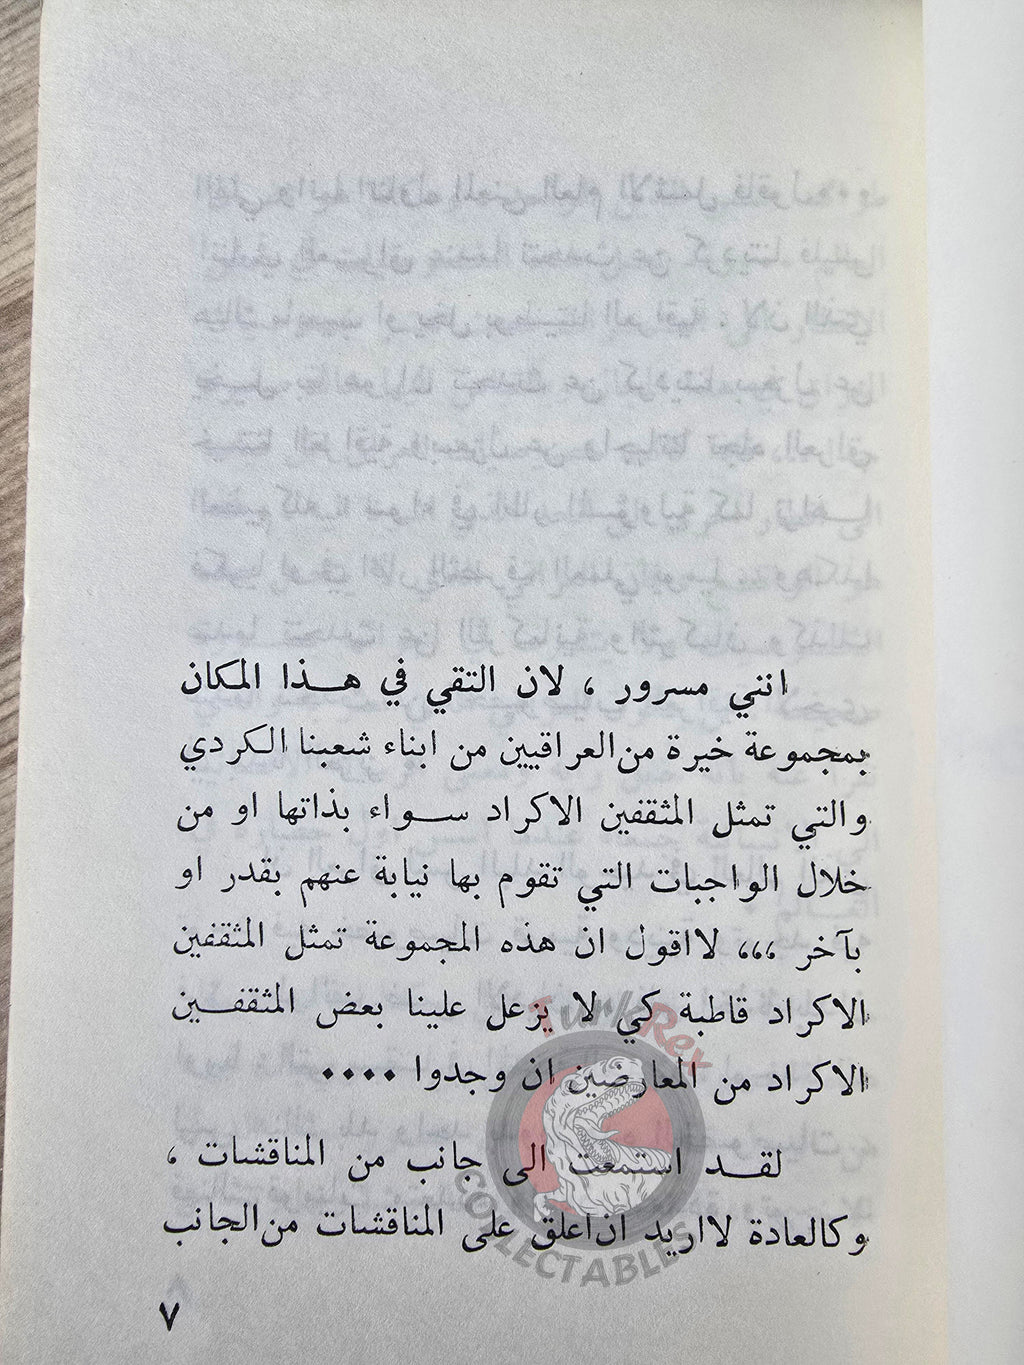 انني مسرور ، لان التقي في هـــذا المكان
بمجموعة خيرة من العراقيين من ابناء شعبنا الكردي
والتي تمثل المثقفين الاكراد ســـواء بذاتها او من
خلال الواجبات التي تقوم بها نيابة عنهم بقدر او
بآخر ،،، لا اقول ان هذه المجموعة تمثل المثقفين
الاكراد قاطبة كي لا يزعل علينا بعض المثقفـــين
الاكراد من المعارضين ان وجدوا ....
لقـــد استمعت الى جانب من المناقشات ،
وكالعادة لا اريد ان اعلق على المناقشات من الجانب
٧
Rex
COLLECTABLES